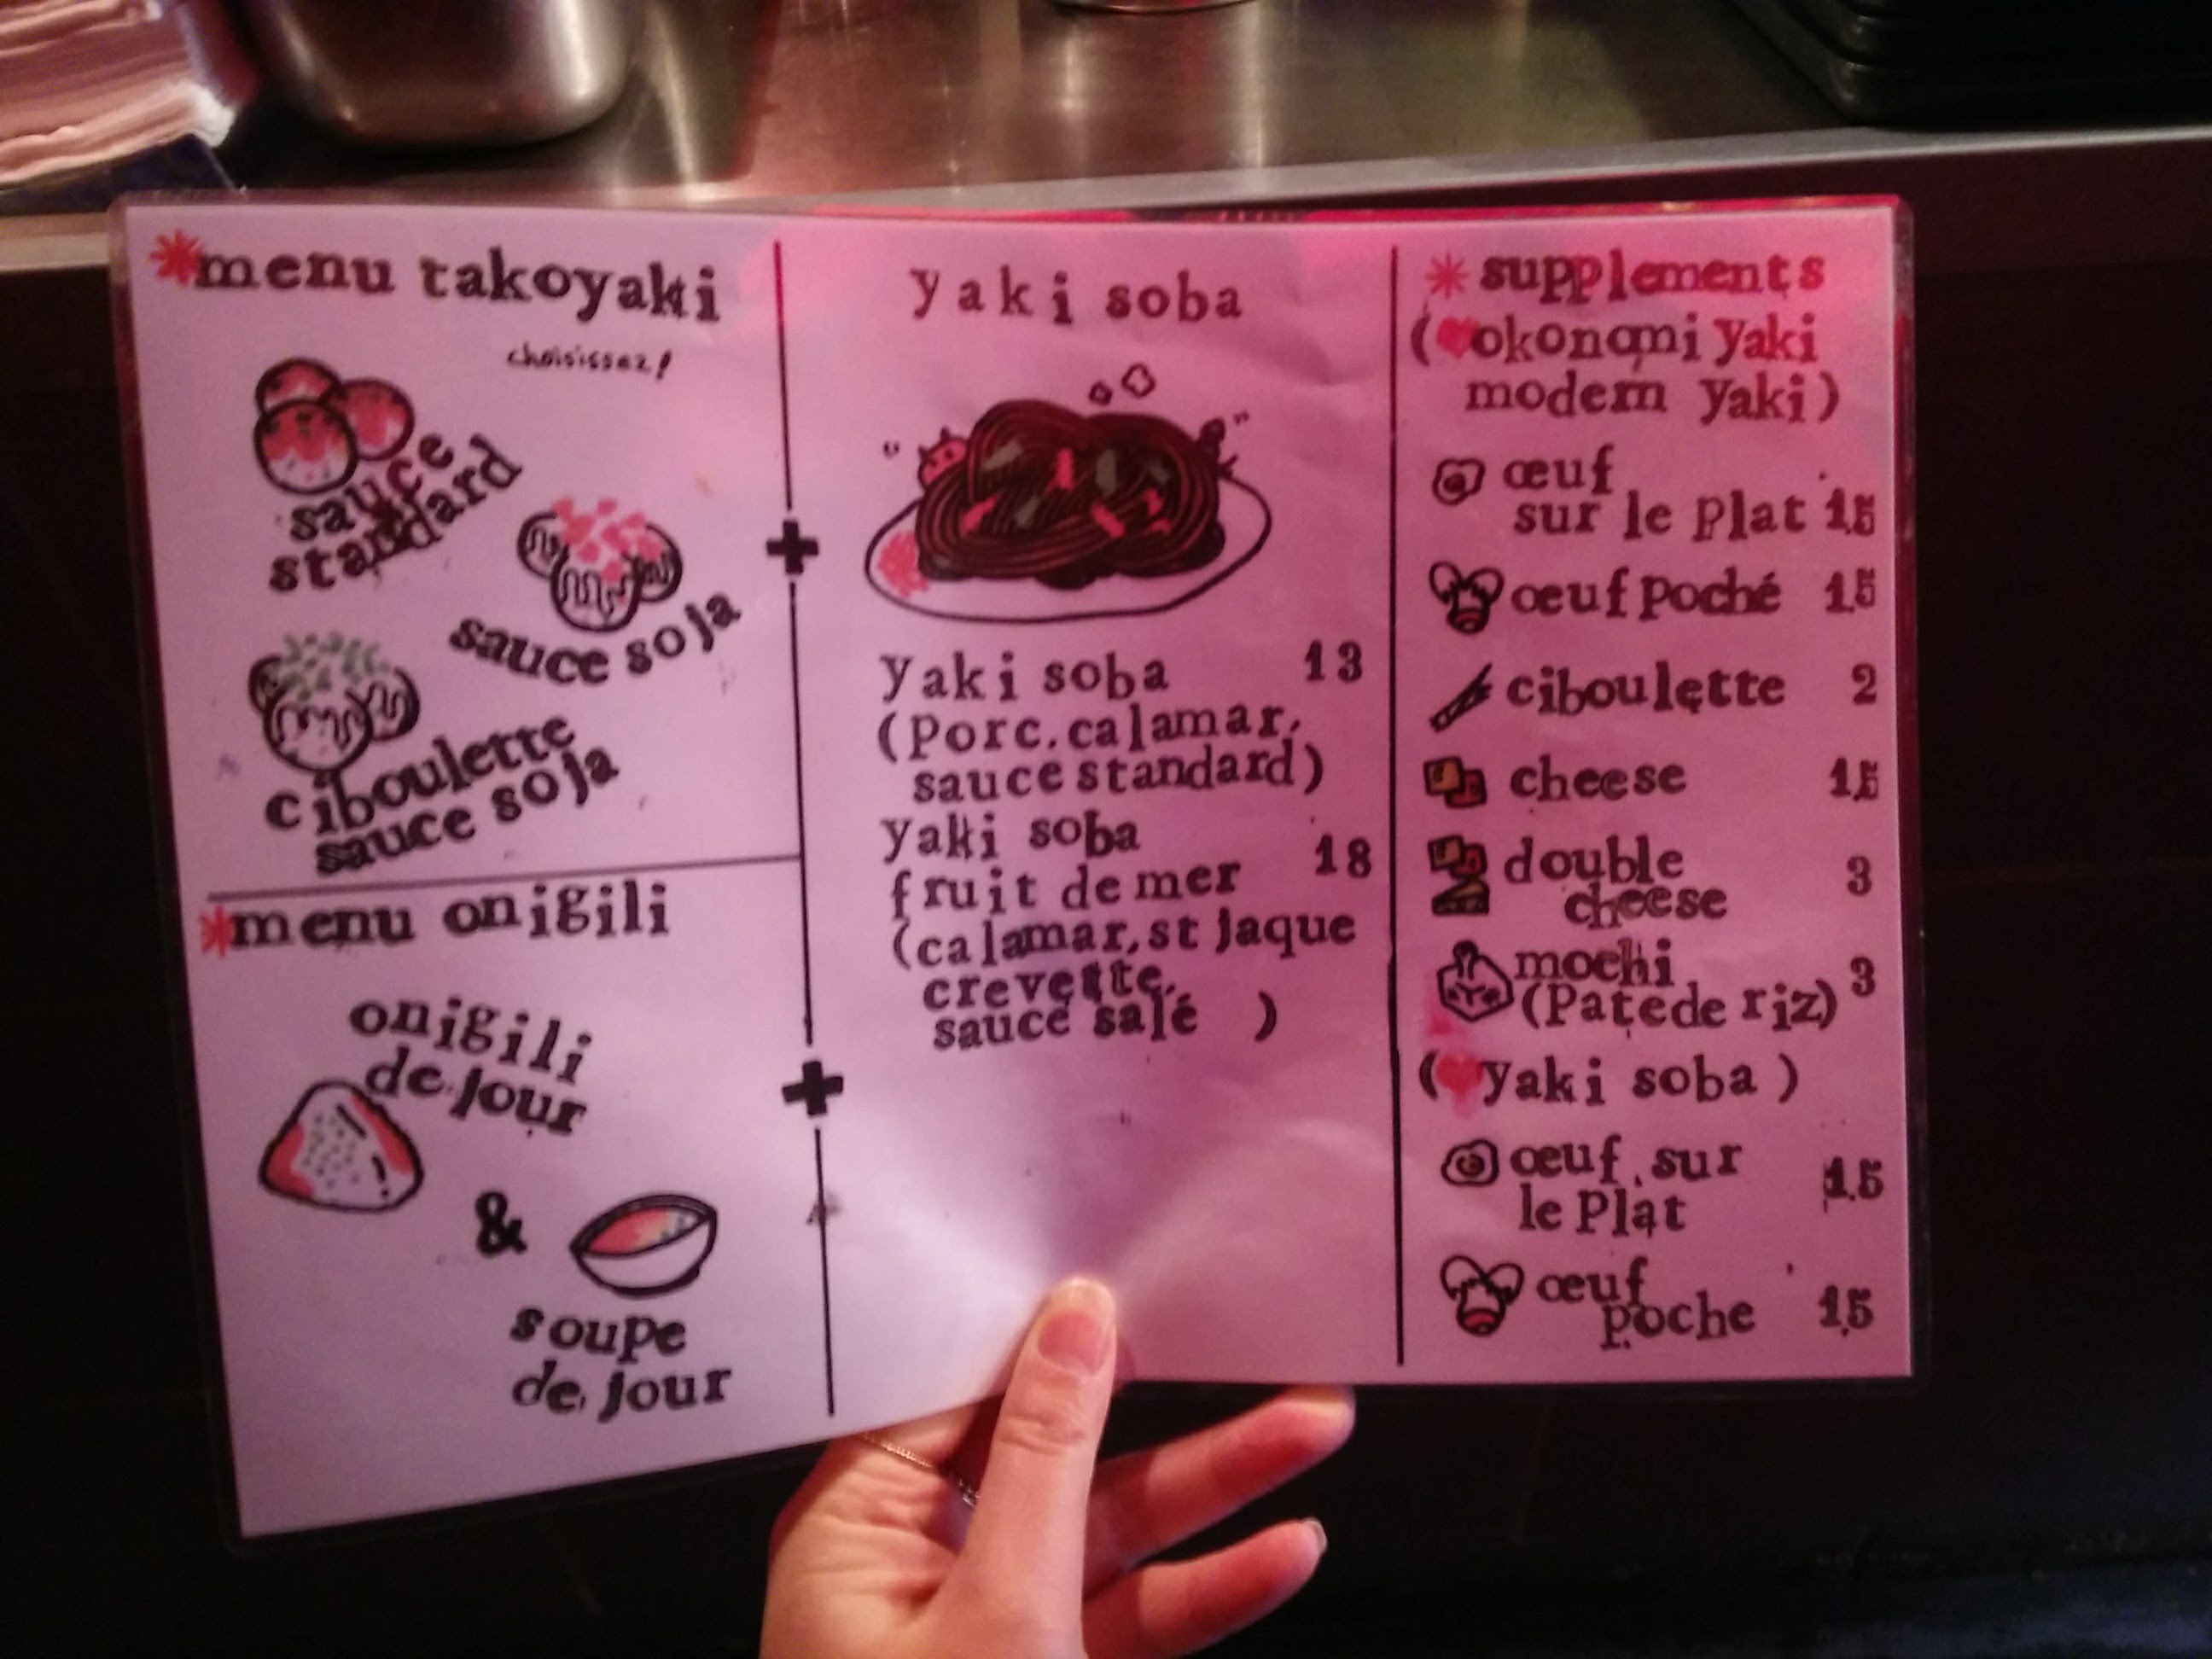 menu takoyaki
choisissez!
sauce
standard
sauce soja
ciboulette
sauce soja
menu onigili
onigili
de jour
&
soupe
de jour
+
+
yaki soba
yaki soba 13
(Porc. calamar,
sauce standard)
yaki soba
fruit de mer 18
(calamar, st Jaque
crevette,
sauce salé )
supplements
(okonomi yaki
modern yaki)
œuf
sur le Plat 1.5
œuf Poché 1.5
ciboulette 2
cheese 1.5
double
cheese 3
mochi
(Pate de riz) 3
(yaki soba)
œuf sur
le Plat 1.5
œuf
poche 1.5